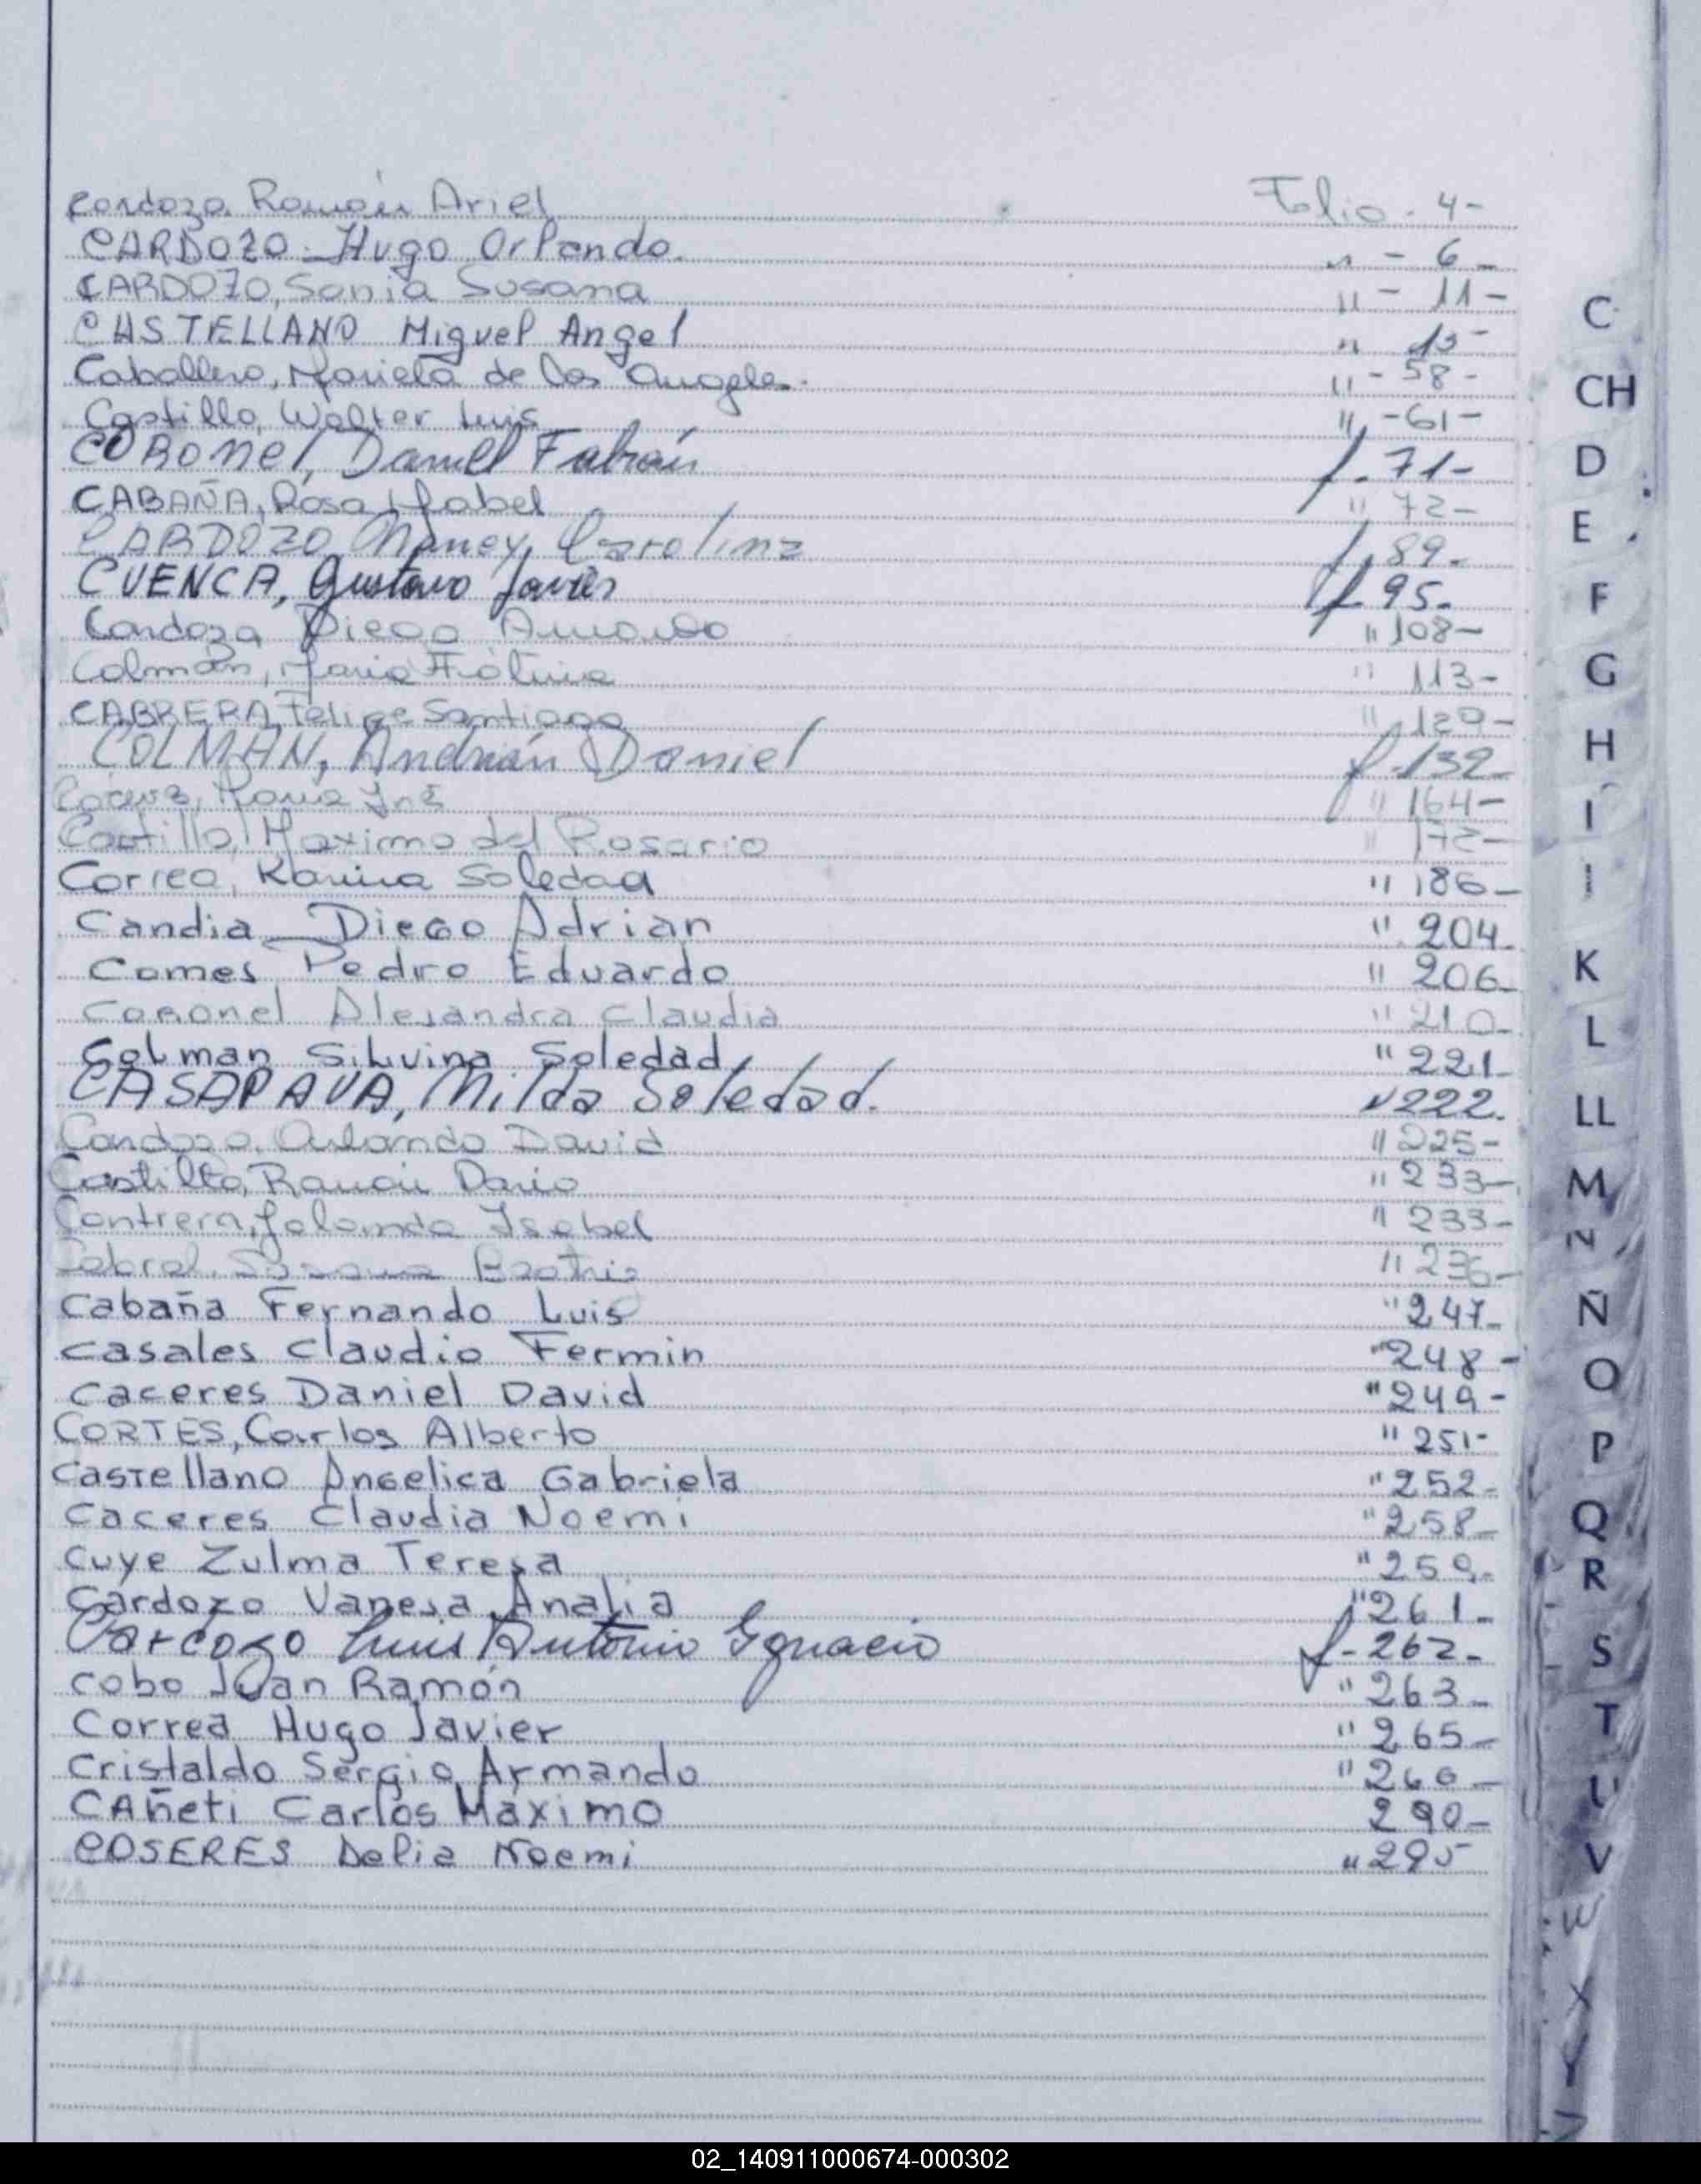 Cardozo Ramón Ariel Folio - 4-
CARDOZO - Hugo Orlando. " - 6-
CARDOZO, Sonia Susana " - 11-
CASTELLANO Miguel Angel "
Caballero, Mariela de los Angeles. " - 58-
Castillo, Walter Luis " - 61-
CORONEL, Daniel Fabián f. 71-
CABAÑA, Rosa Isabel " 72-
CARDOZO Nancy, Carolina f. 89-
CUENCA, Gustavo Javier f. 95-
Cardozo Diego Armando " 108-
Colmán, María " 113-
CABRERA, Felipe Santiago " 129-
COLMAN, Andrián Daniel f-132-
María " 164-
Castillo, Maximo del Rosario " 172-
Correa, Karina Soledad " 186-
Candia Diego Adrian " 204-
Comes Pedro Eduardo " 206-
Coronel Alejandra Claudia " 210-
Colman Silvina Soledad " 221-
CASAPAVA, Milda Soledad. " 222.
Cardozo, David " 225-
Castillo, Ramón Dario " 233-
Contrera, Yolanda Isabel " 233-
Cabral, Susana Beatriz " 236-
Cabaña Fernando Luis " 247-
Casales Claudio Fermin " 248-
Caceres Daniel David " 249-
CORTES, Carlos Alberto " 251-
Castellano Angelica Gabriela " 252-
Caceres Claudia Noemi " 258-
Cuye Zulma Teresa " 259-
Cardozo Vanesa Analia " 261-
Cardozo Luis Antonio Ignacio f- 262-
Cobo Juan Ramón " 263-
Correa Hugo Javier " 265-
Cristaldo Sergio Armando " 266-
CAñeti Carlos Máximo 290-
COSERES Delia Noemi " 295
C
CH
D
E
F
G
H
I
K
L
LL
M
N
Ñ
O
P
Q
R
S
T
U
V
W
X
Y
02_140911000674-000302